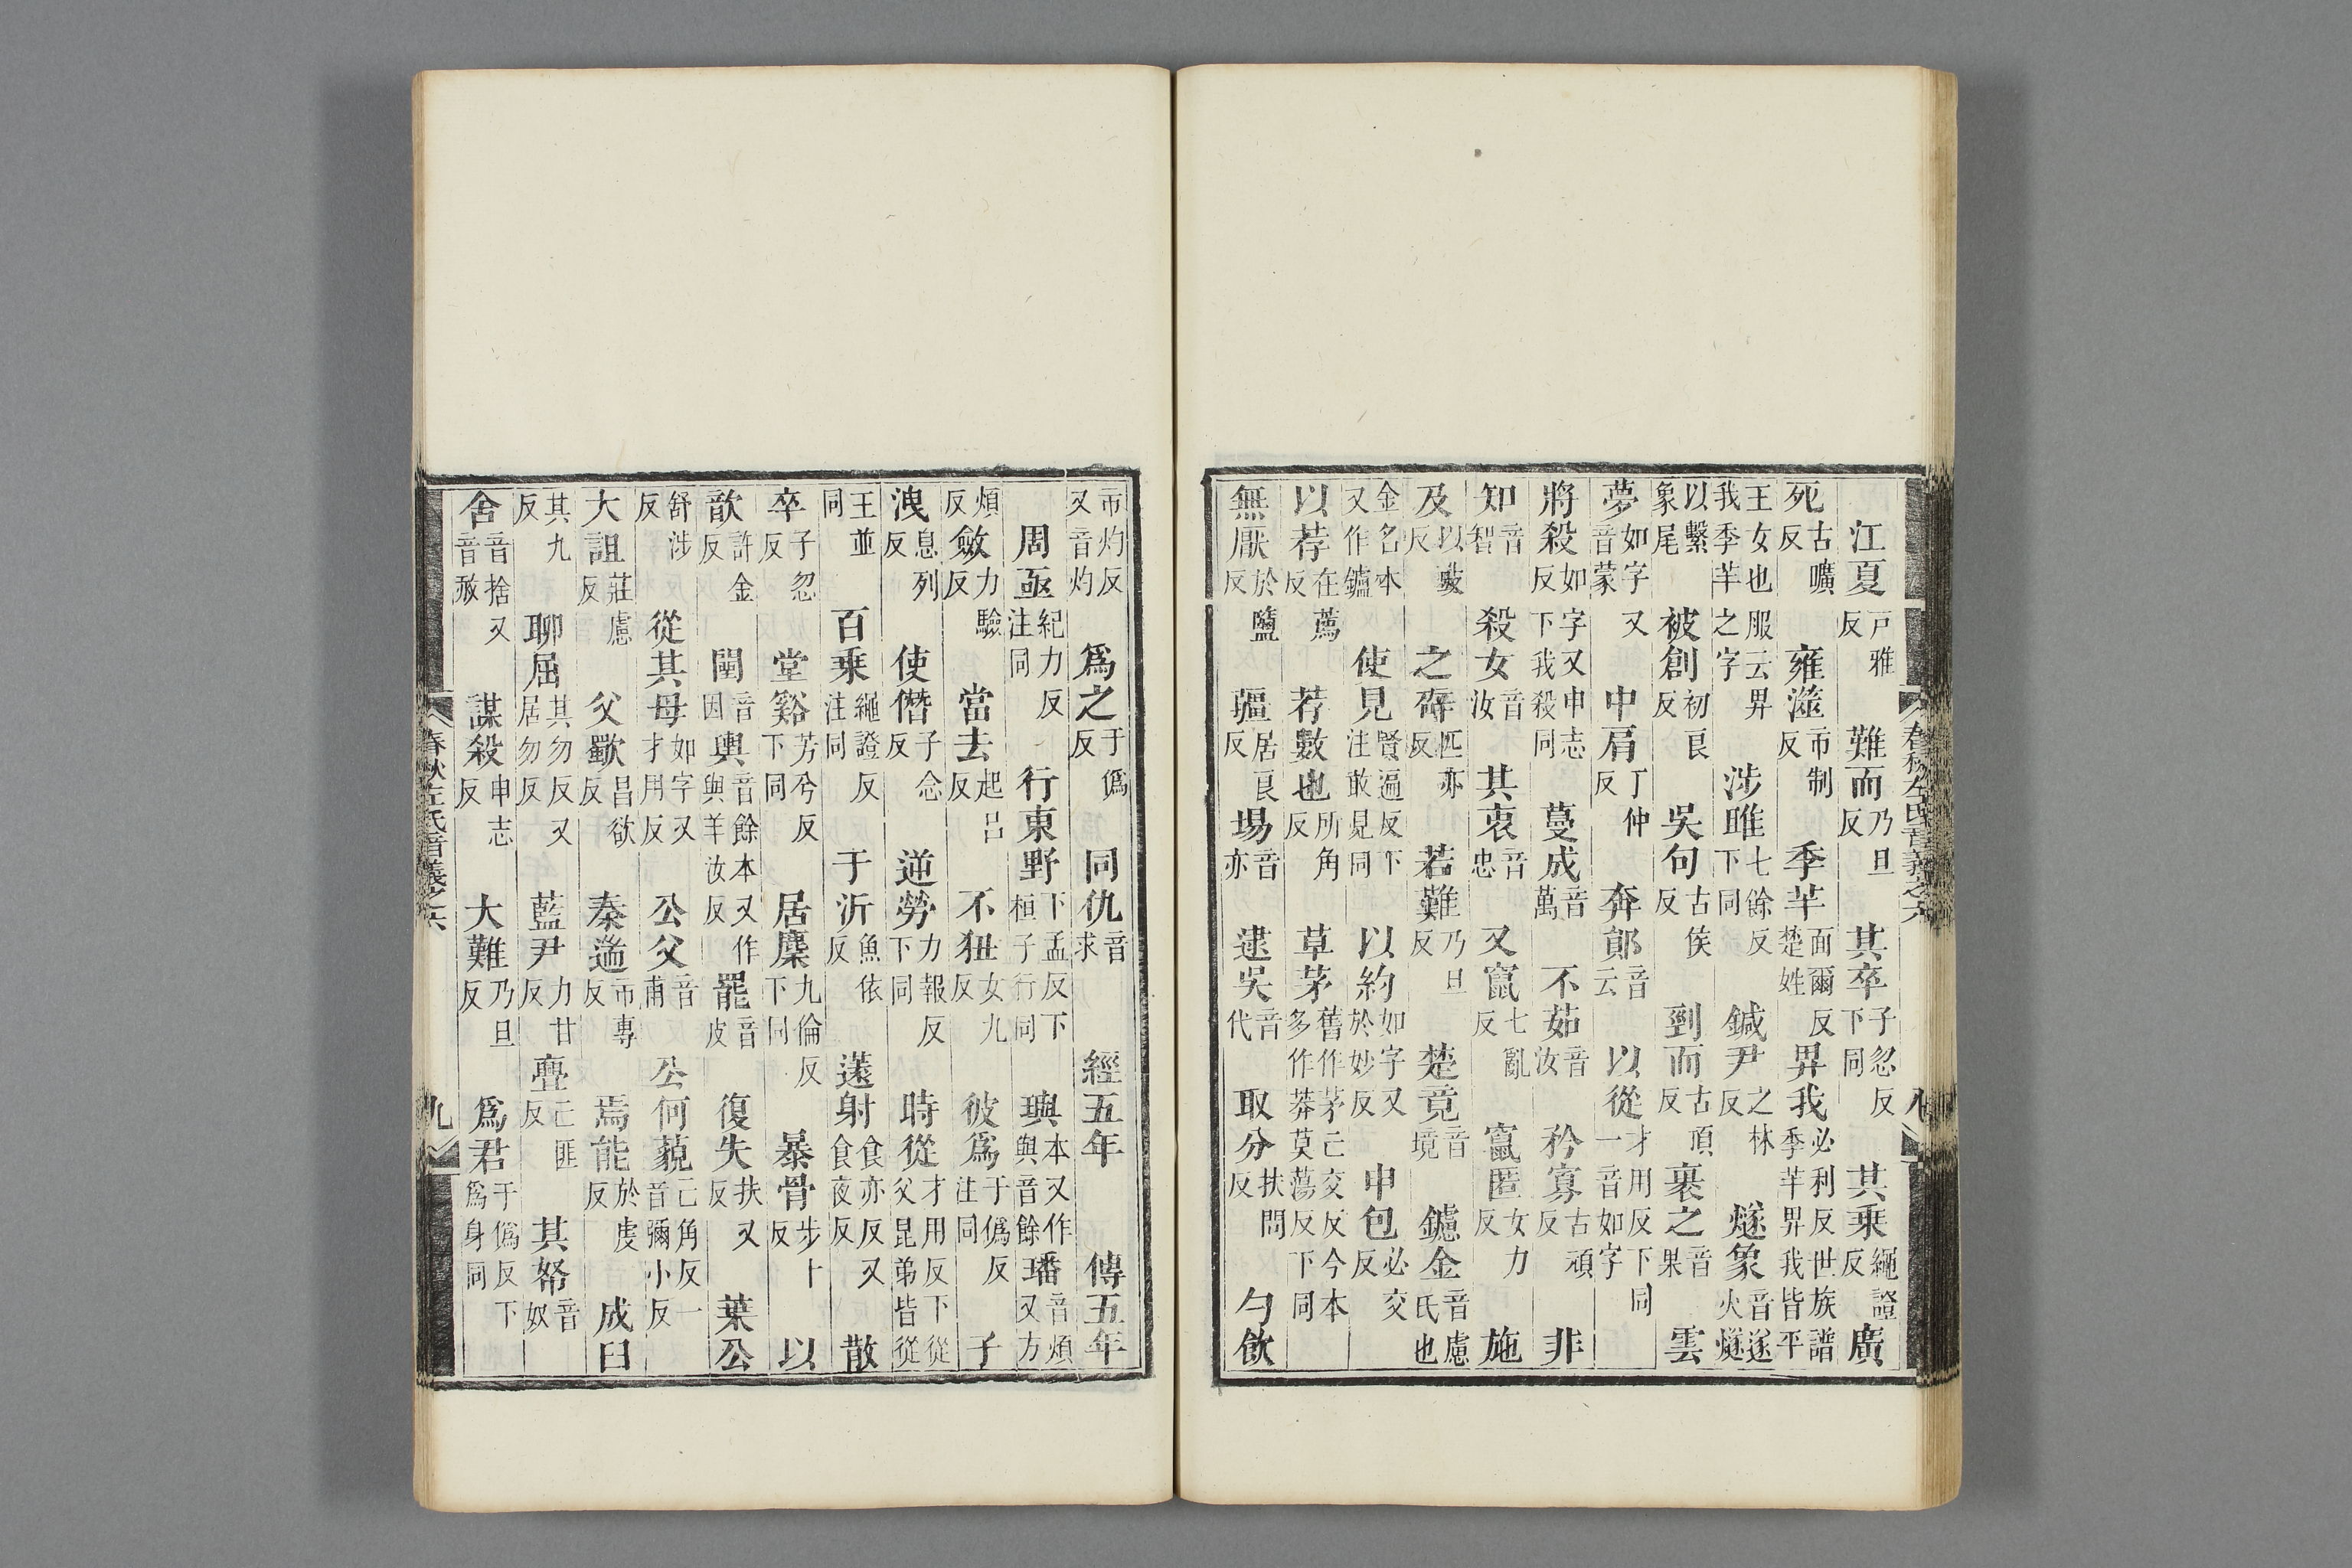 江夏戸雅反 難而乃旦反 其卒子忽反下同 其乘繩證反 廣
死古曠反 雍澨市制反 季羋面爾反楚姓 畀我必利反世族譜季羋畀我皆平
王女也服云畀我季羋之字 涉雎七餘反下同 鍼尹之林反 燧象音遂火燧
以繫象尾 被創初良反 吳句古侯反 剄而古頂反 裹之音果 雲
夢如字又音蒙 中肩丁仲反 奔鄖音云 以從才用反下同一音如字
將殺如字又申志反下我殺同 蔓成音萬 不茹音汝 矜寡古頑反 非
知音智 殺女音汝 其衷音忠 又竄七亂反 竄匿女力反 施
及以豉反 之辟匹亦反 若難乃旦反 楚竟音境 鑢金音慮氏也
金名本又作鑪 使見賢遍反下注敢見同 以約如字又於妙反 申包必交反
以荐在薦反 荐數也所角反 草茅舊作茅亡交反今本多作莽莫蕩反下同
無厭於鹽反 疆居良反 埸音亦 逮吳音代 取分扶問反 勺飲
春秋左氏音義之六 八
市灼反又音灼 爲之于僞反 同仇音求 經五年 傳五年
周亟紀力反注同 行東野下孟反下桓子行同 璵本又作與音餘 璠音煩又方
煩反 斂力驗反 當去起呂反 不狃女九反 彼爲于僞反注同 子
洩息列反 使僭子念反 逆勞力報反下同 時從才用反下從父昆弟皆從
王並同 百乘繩證反注同 于沂魚依反 薳射食亦反又食夜反 散
卒子忽反 堂谿芳兮反下同 居麇九倫反下同 暴骨步卜反 以
歆許金反 闉音因 輿音餘本又作與羊汝反 罷音皮 復失扶又反 葉公
舒涉反 從其母如字又才用反 公父音甫 公何藐亡角反一音彌小反
大詛莊慮反 父歜昌欲反 秦遄市專反 焉能於虔反 成臼
其九反 聊屈其勿反又居勿反 藍尹力甘反 亹亡匪反 其帑音奴
舍音捨又音赦 謀殺申志反 大難乃旦反 爲君于僞反下爲身同
春秋左氏音義之六 九